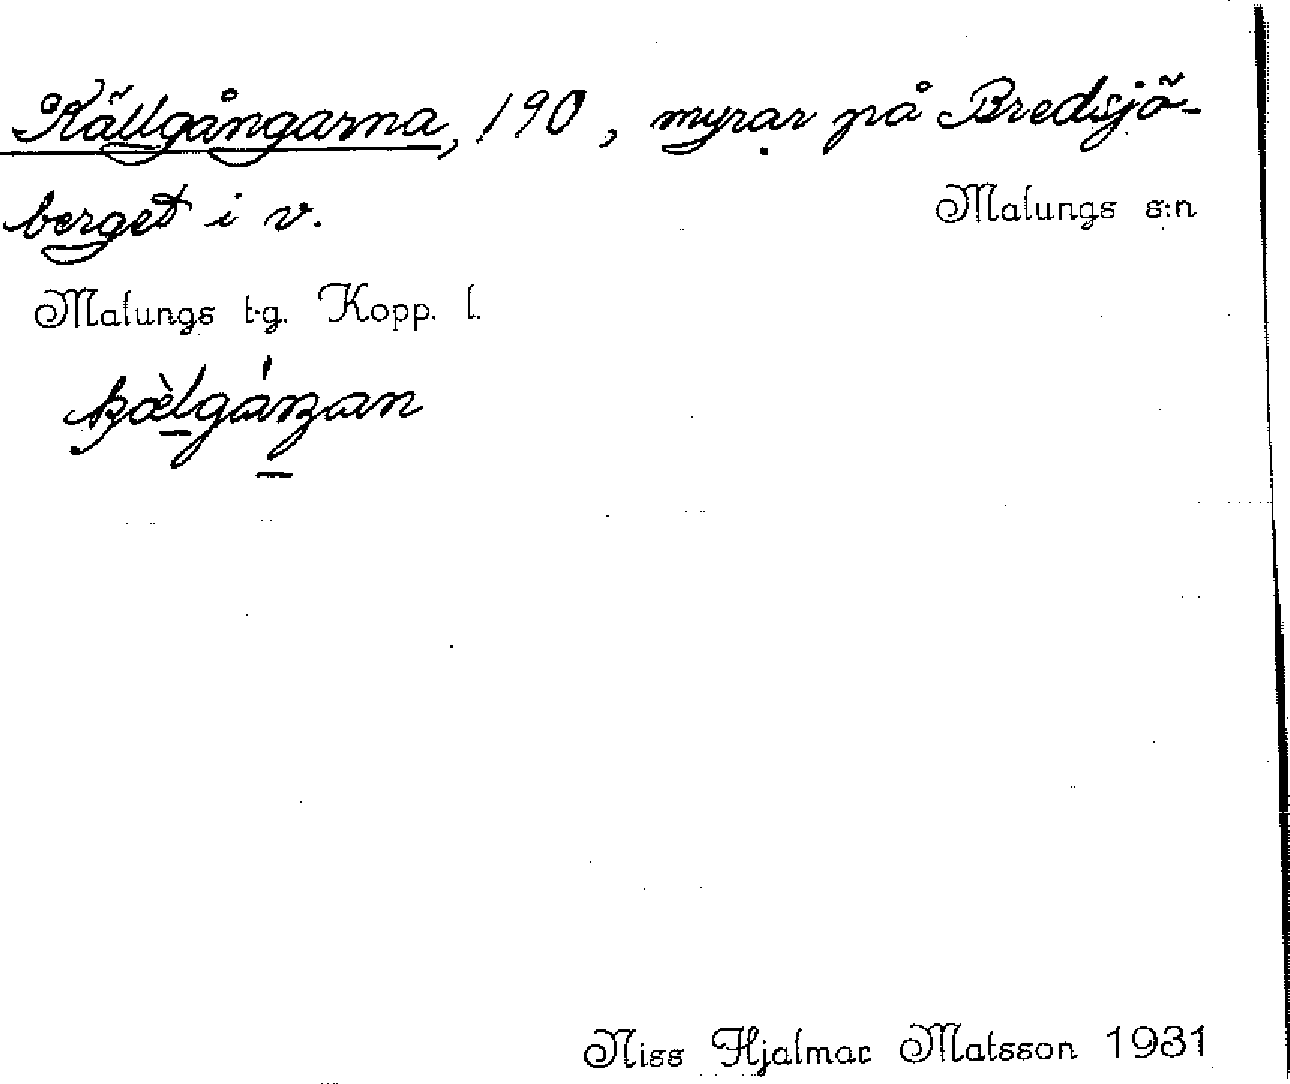 Källgångarna, 190, myrar på Bredsjö-
berget i v.
Malungs s:n
Malungs tg. Kopp. l.
Niss Hjalmar Matsson 1931